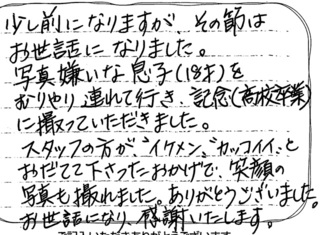 少し前になりますが、その節は
お世話になりました。
写真嫌いな息子(18才)を
むりやり連れて行き、記念(高校卒業)
に撮っていただきました。
スタッフの方が、"イケメン、"カッコイイ、と
おだてて下さったおかげで、笑顔の
写真も撮れました。ありがとうございました。
お世話になり、感謝いたします。
ご記入いただきありがとうございます